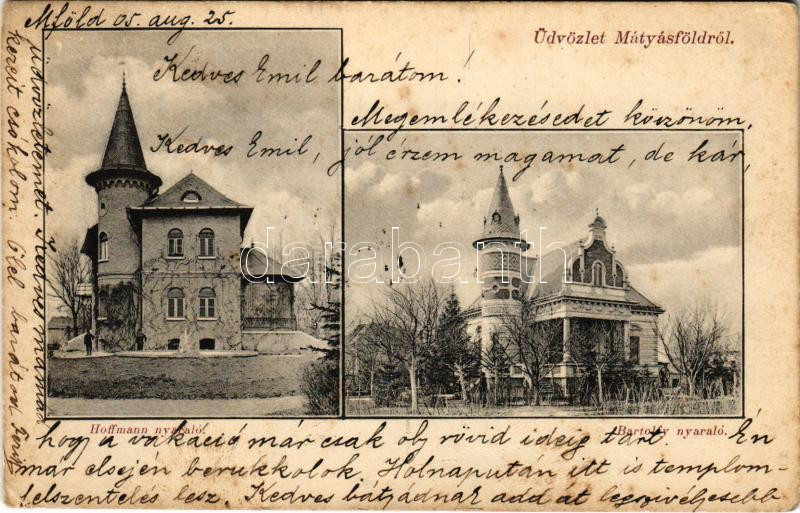 Mföld 05. aug. 25.
Üdvözlet Mátyásföldről.
Kedves Emil barátom!
Megemlékezésedet köszönöm,
Kedves Emil, jól érzem magamat, de kár,
darabanth
Hoffmann nyaraló.
Bartoffy nyaraló.
hogy a vakáció már csak oly rövid ideig tart. Én
már elsején berukkolok. Holnapután itt is templom-
felszentelés lesz. Kedves bátyádnak add át legszivélyesebb
üdvözletemet.
kezeit csókolom Ölel barátod